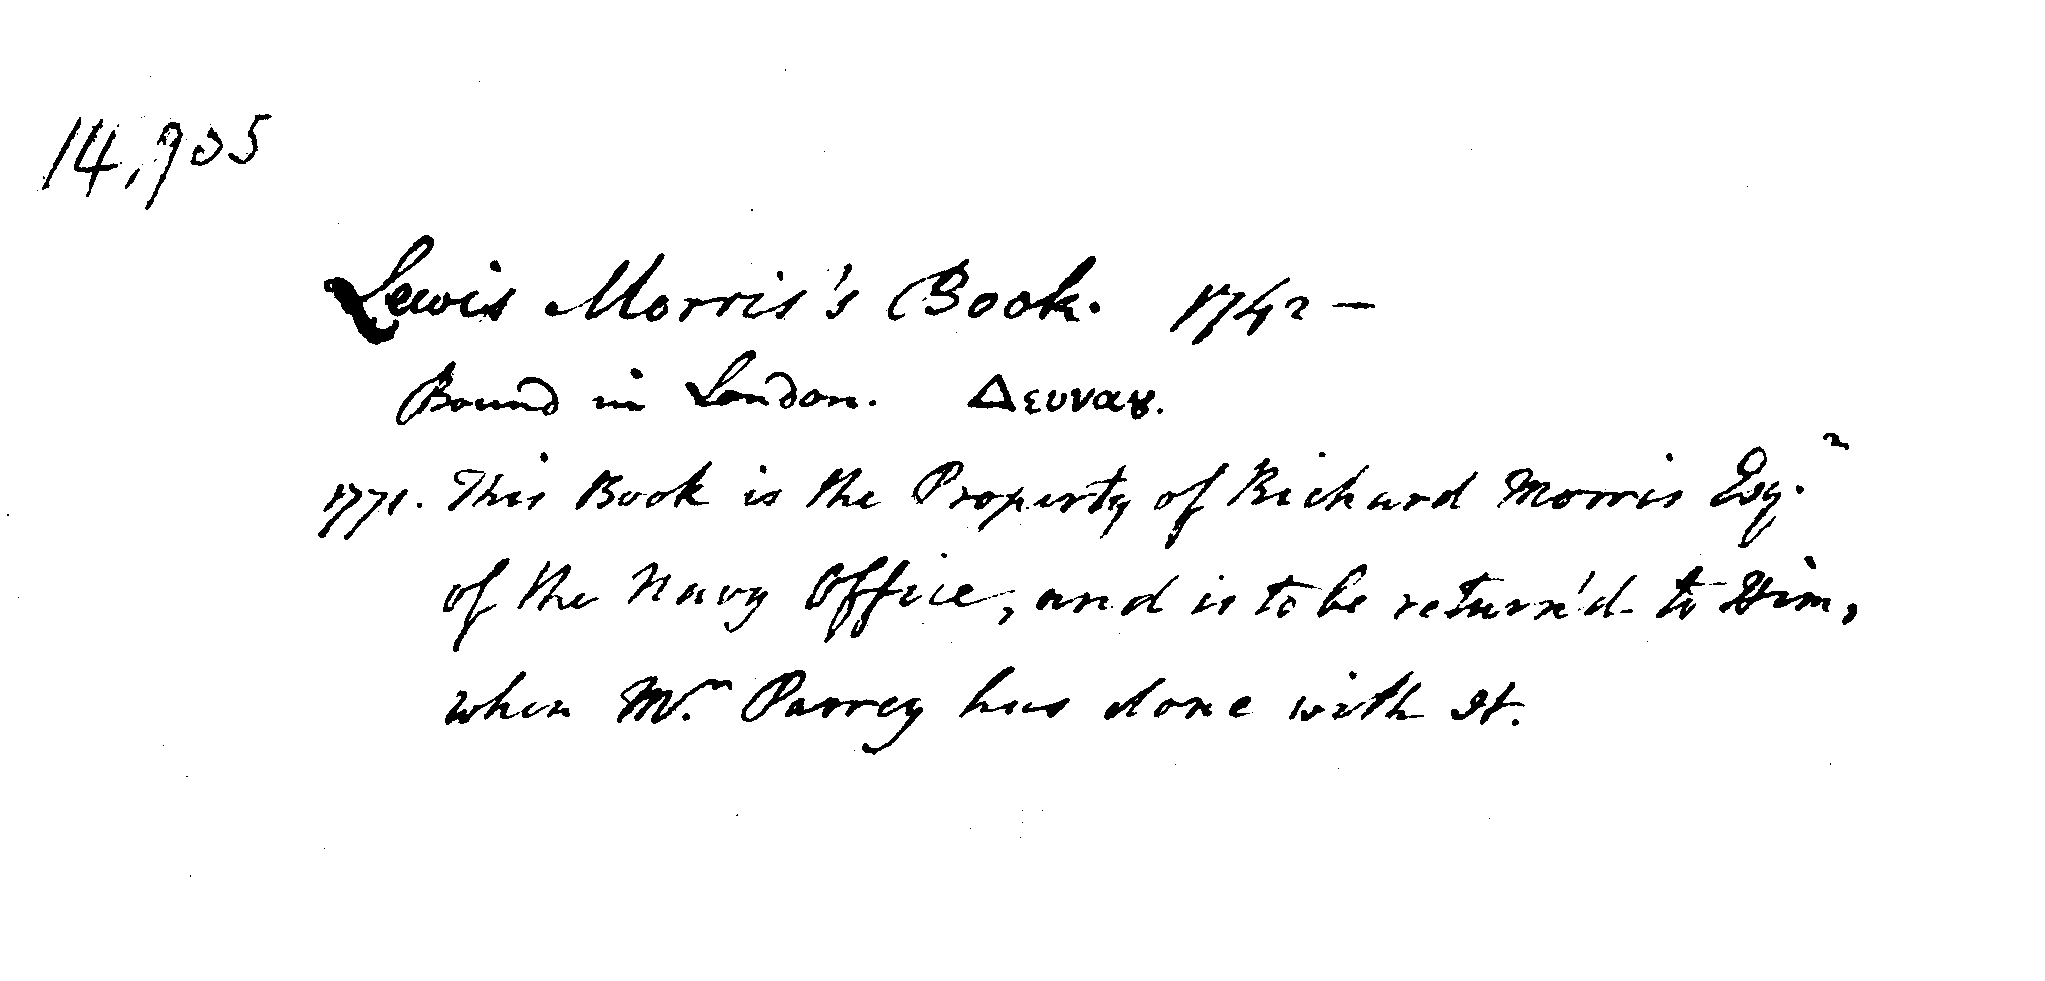 14,905
Lewis Morris's Book. 1742 —
Bound in London. Δευναȣ.
1771. This Book is the Property of Richard Morris Esq.r
of the Navy Office, and is to be return'd to Him,
when Mr. Parrey has done with It.